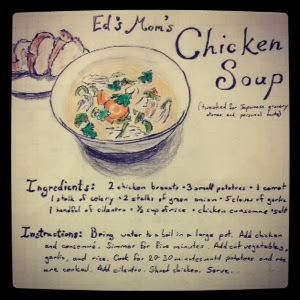 Ed's Mom's
Chicken
Soup
(tweaked for Japanese grocery
stores and personal taste)
Ingredients: 2 chicken breasts • 3 small potatoes • 1 carrot
1 stalk of celery • 2 stalks of green onion • 5 cloves of garlic
1 handful of cilantro • ½ cup of rice • chicken consommé • salt
Instructions: Bring water to a boil in a large pot. Add chicken
and consommé. Simmer for five minutes. Add cut vegetables,
garlic, and rice. Cook for 20-30 minutes until potatoes and rice
are cooked. Add cilantro. Shred chicken. Serve.